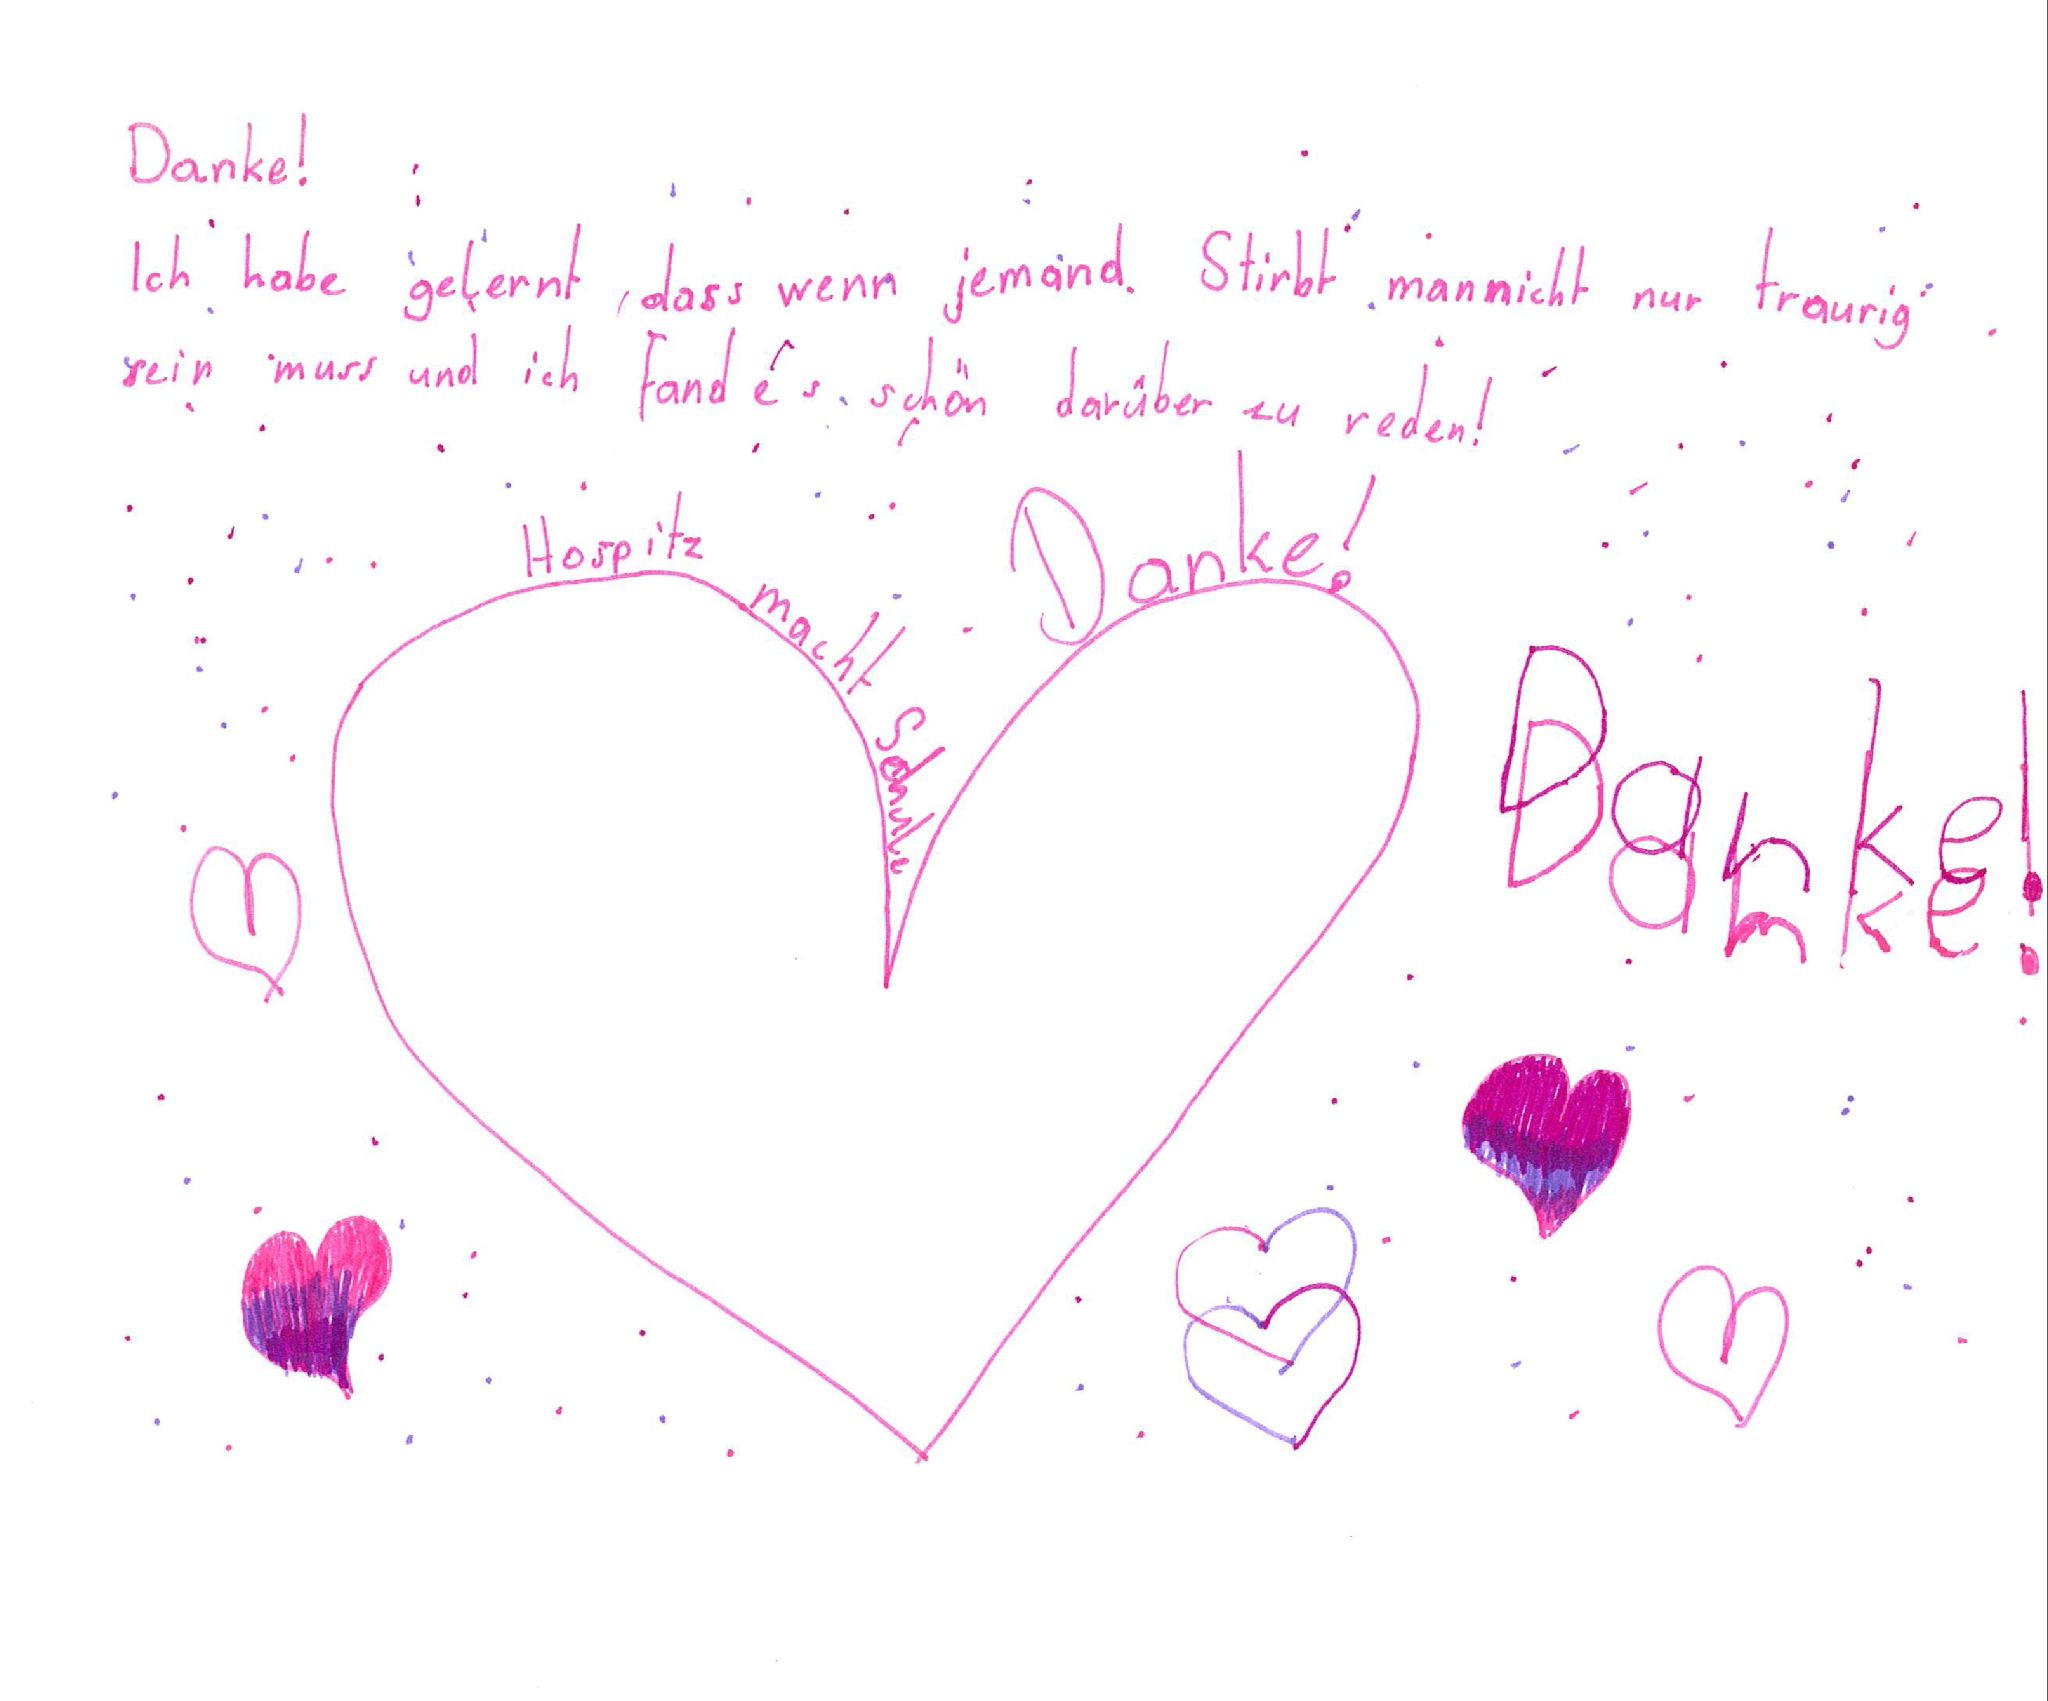 Danke!
Ich habe gelernt, dass wenn jemand Stirbt man nicht nur traurig
sein muss und ich Fand es schön darüber zu reden!
Hospitz macht Schule
Danke!
Danke!
Danke!